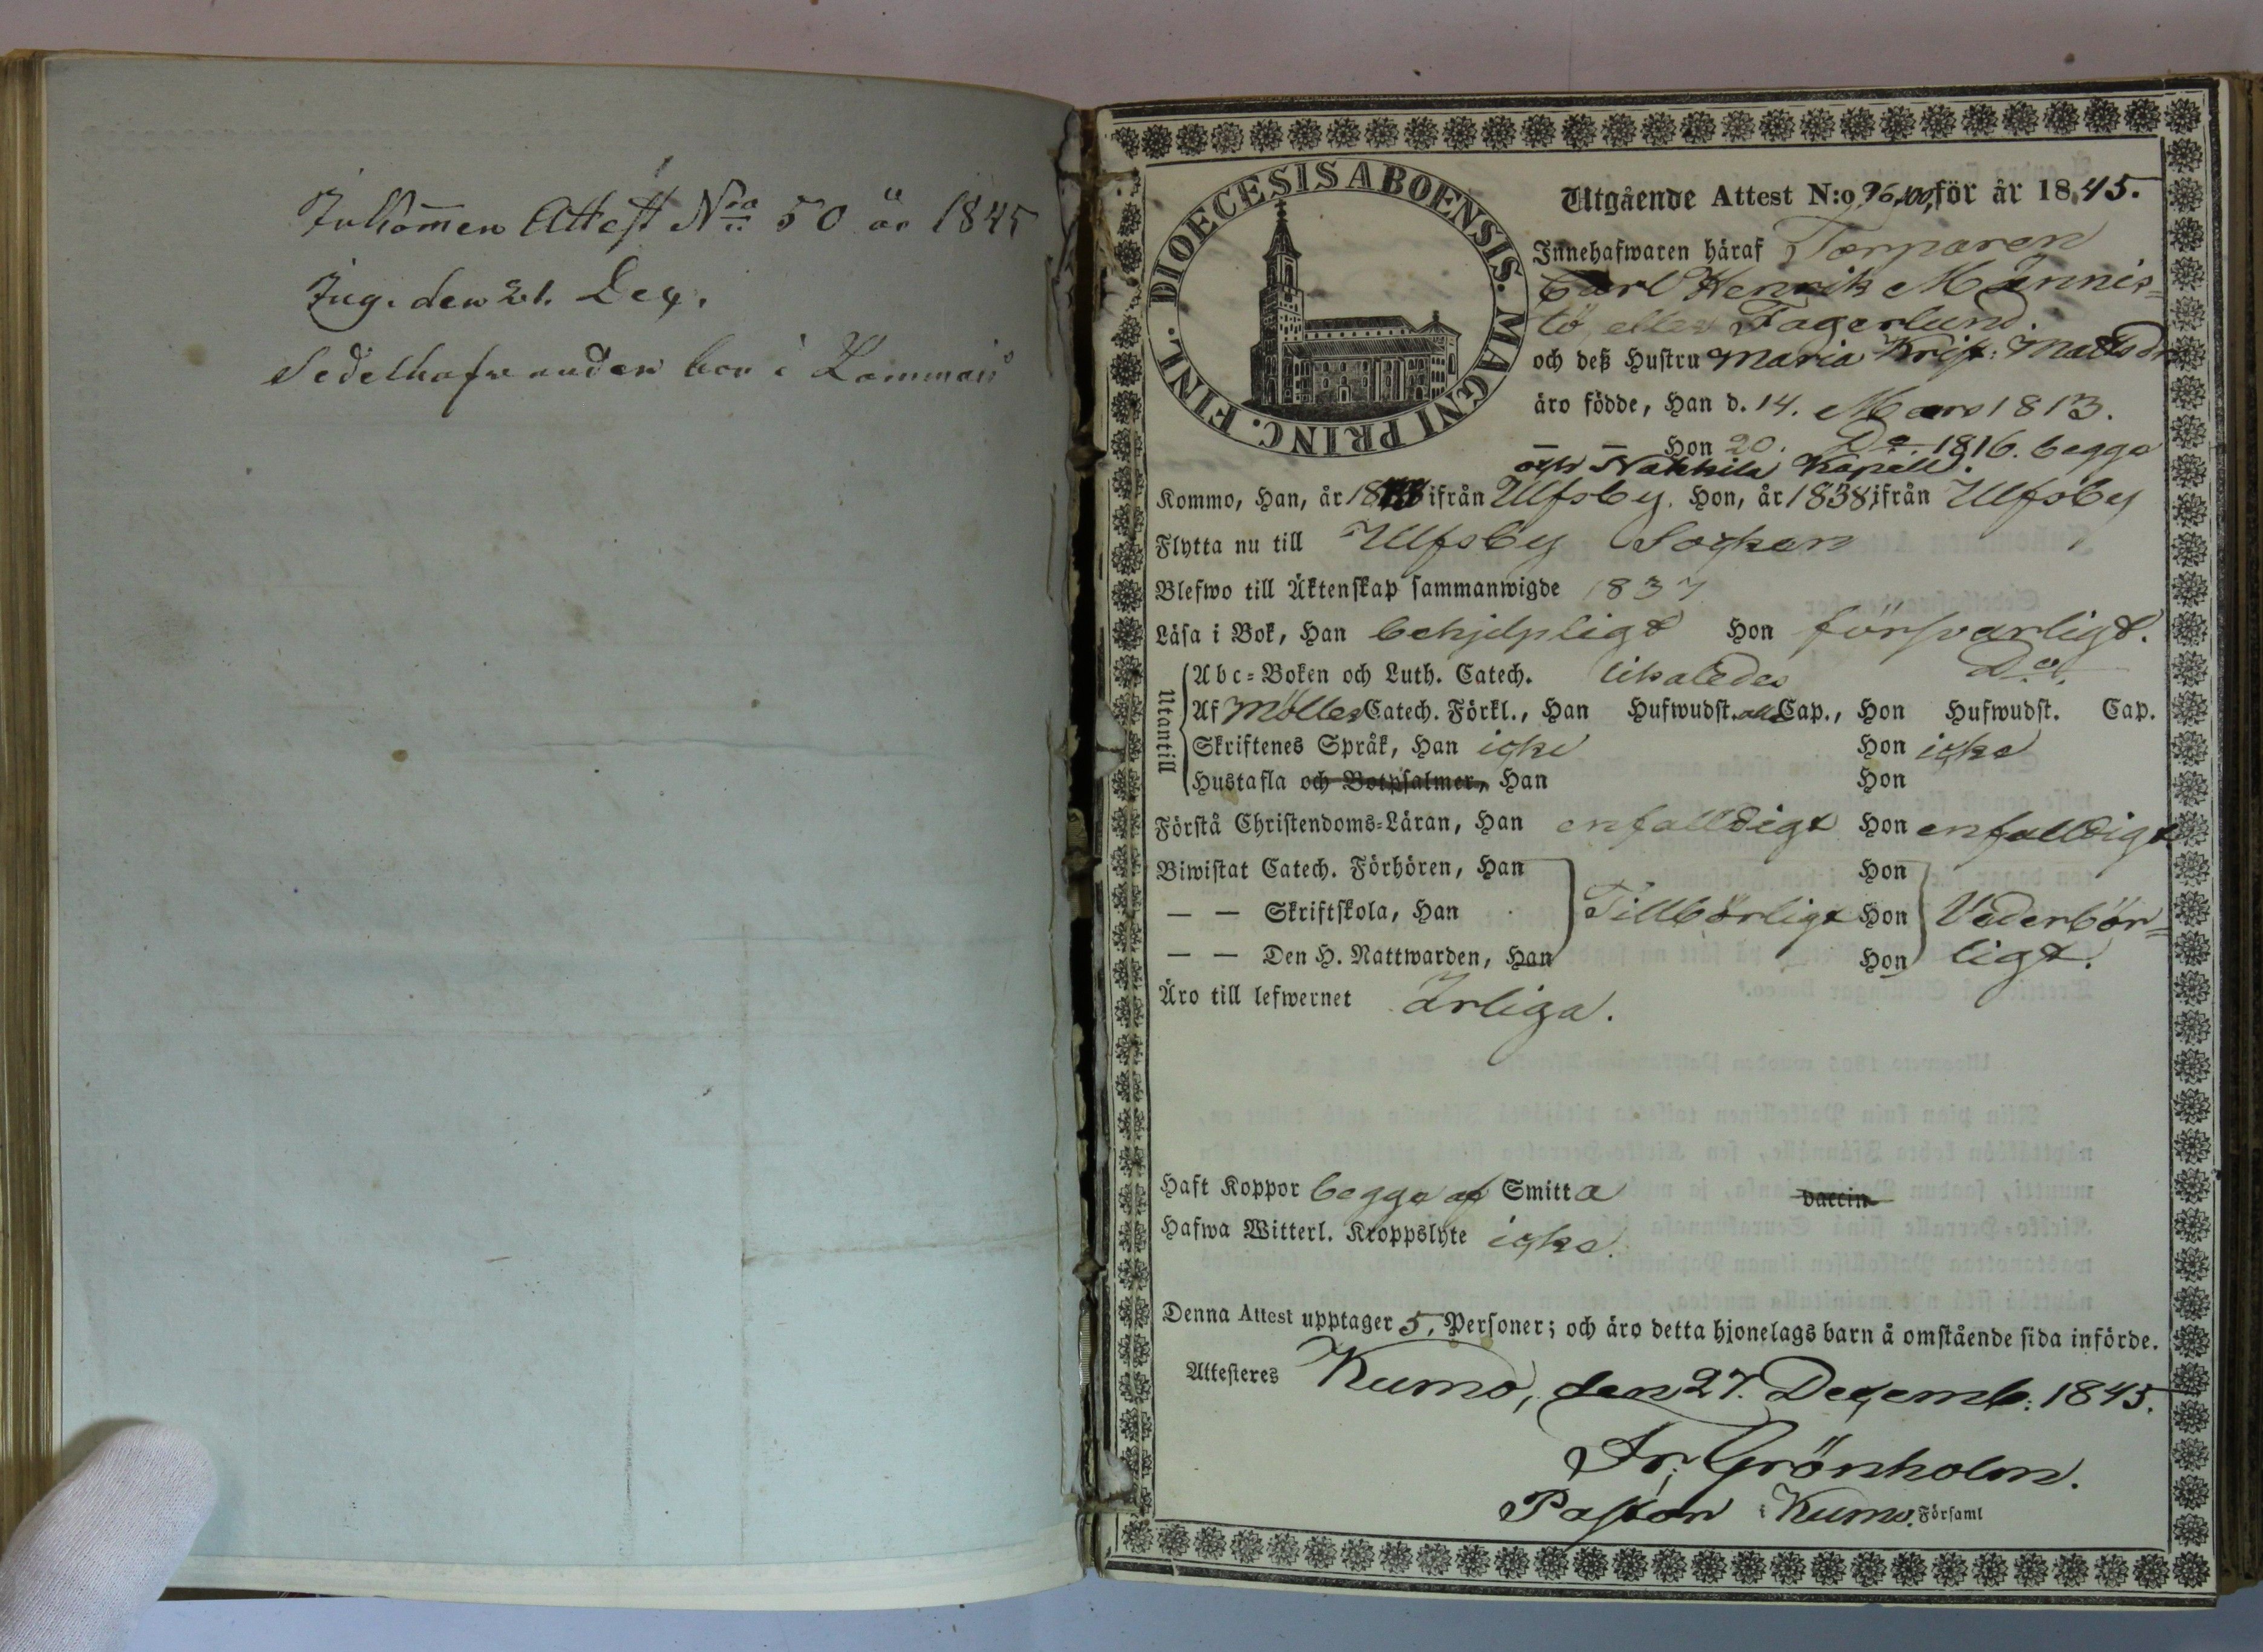 Inkommen Attest No 50 år 1845
Ing. den 21. Dec.
Sedelhafvanden bor i
DIOECESIS ABOENSIS. MAGNI PRINC. FINL.
Utgående Attest N:o 96,100, för år 1845.
Innehafwaren häraf Torparen
Carl Henrik Männis=
tö, eller Fagerlund
och deß Hustru Maria Krist: Mattsdr
äro födde, Han d. 14. Mars 1813.
— — Hon 20. Do 1816. begge
Nakkila Kapell.
Kommo, Han, år 18 ifrån Ulfsby. Hon, år 1838, ifrån Ulfsby
Flytta nu till Ulfsby Socken
Blefwo till Äktenskap sammanwigde 1837
Läsa i Bok, Han behjelpligt Hon försvarligt.
Utantill
Abc=Boken och Luth. Catech. likaledes Do
Af Möllers Catech. Förkl., Han Hufwudst. alla Cap., Hon Hufwudst. Cap.
Skriftenes Språk, Han icke Hon icke
Hustafla och Botpsalmer, Han Hon
Förstå Christendoms=Läran, Han enfalldigt Hon enfalldigt
Biwistat Catech. Förhören, Han Hon
— — Skriftskola, Han Tillbörligt Hon Vederbör=
— — Den H. Nattwarden, Han Hon ligt.
Äro till lefwernet Ärliga.
Haft Koppor begge af Smitta vaccin
Hafwa Witterl. Kroppslyte icke.
Denna Attest upptager 5. Personer; och äro detta hjonelags barn å omstående sida införde.
Attesteres Kumo, den 27. Decemb: 1845.
Fr: Grönholm.
Pastor i Kumo. Församl